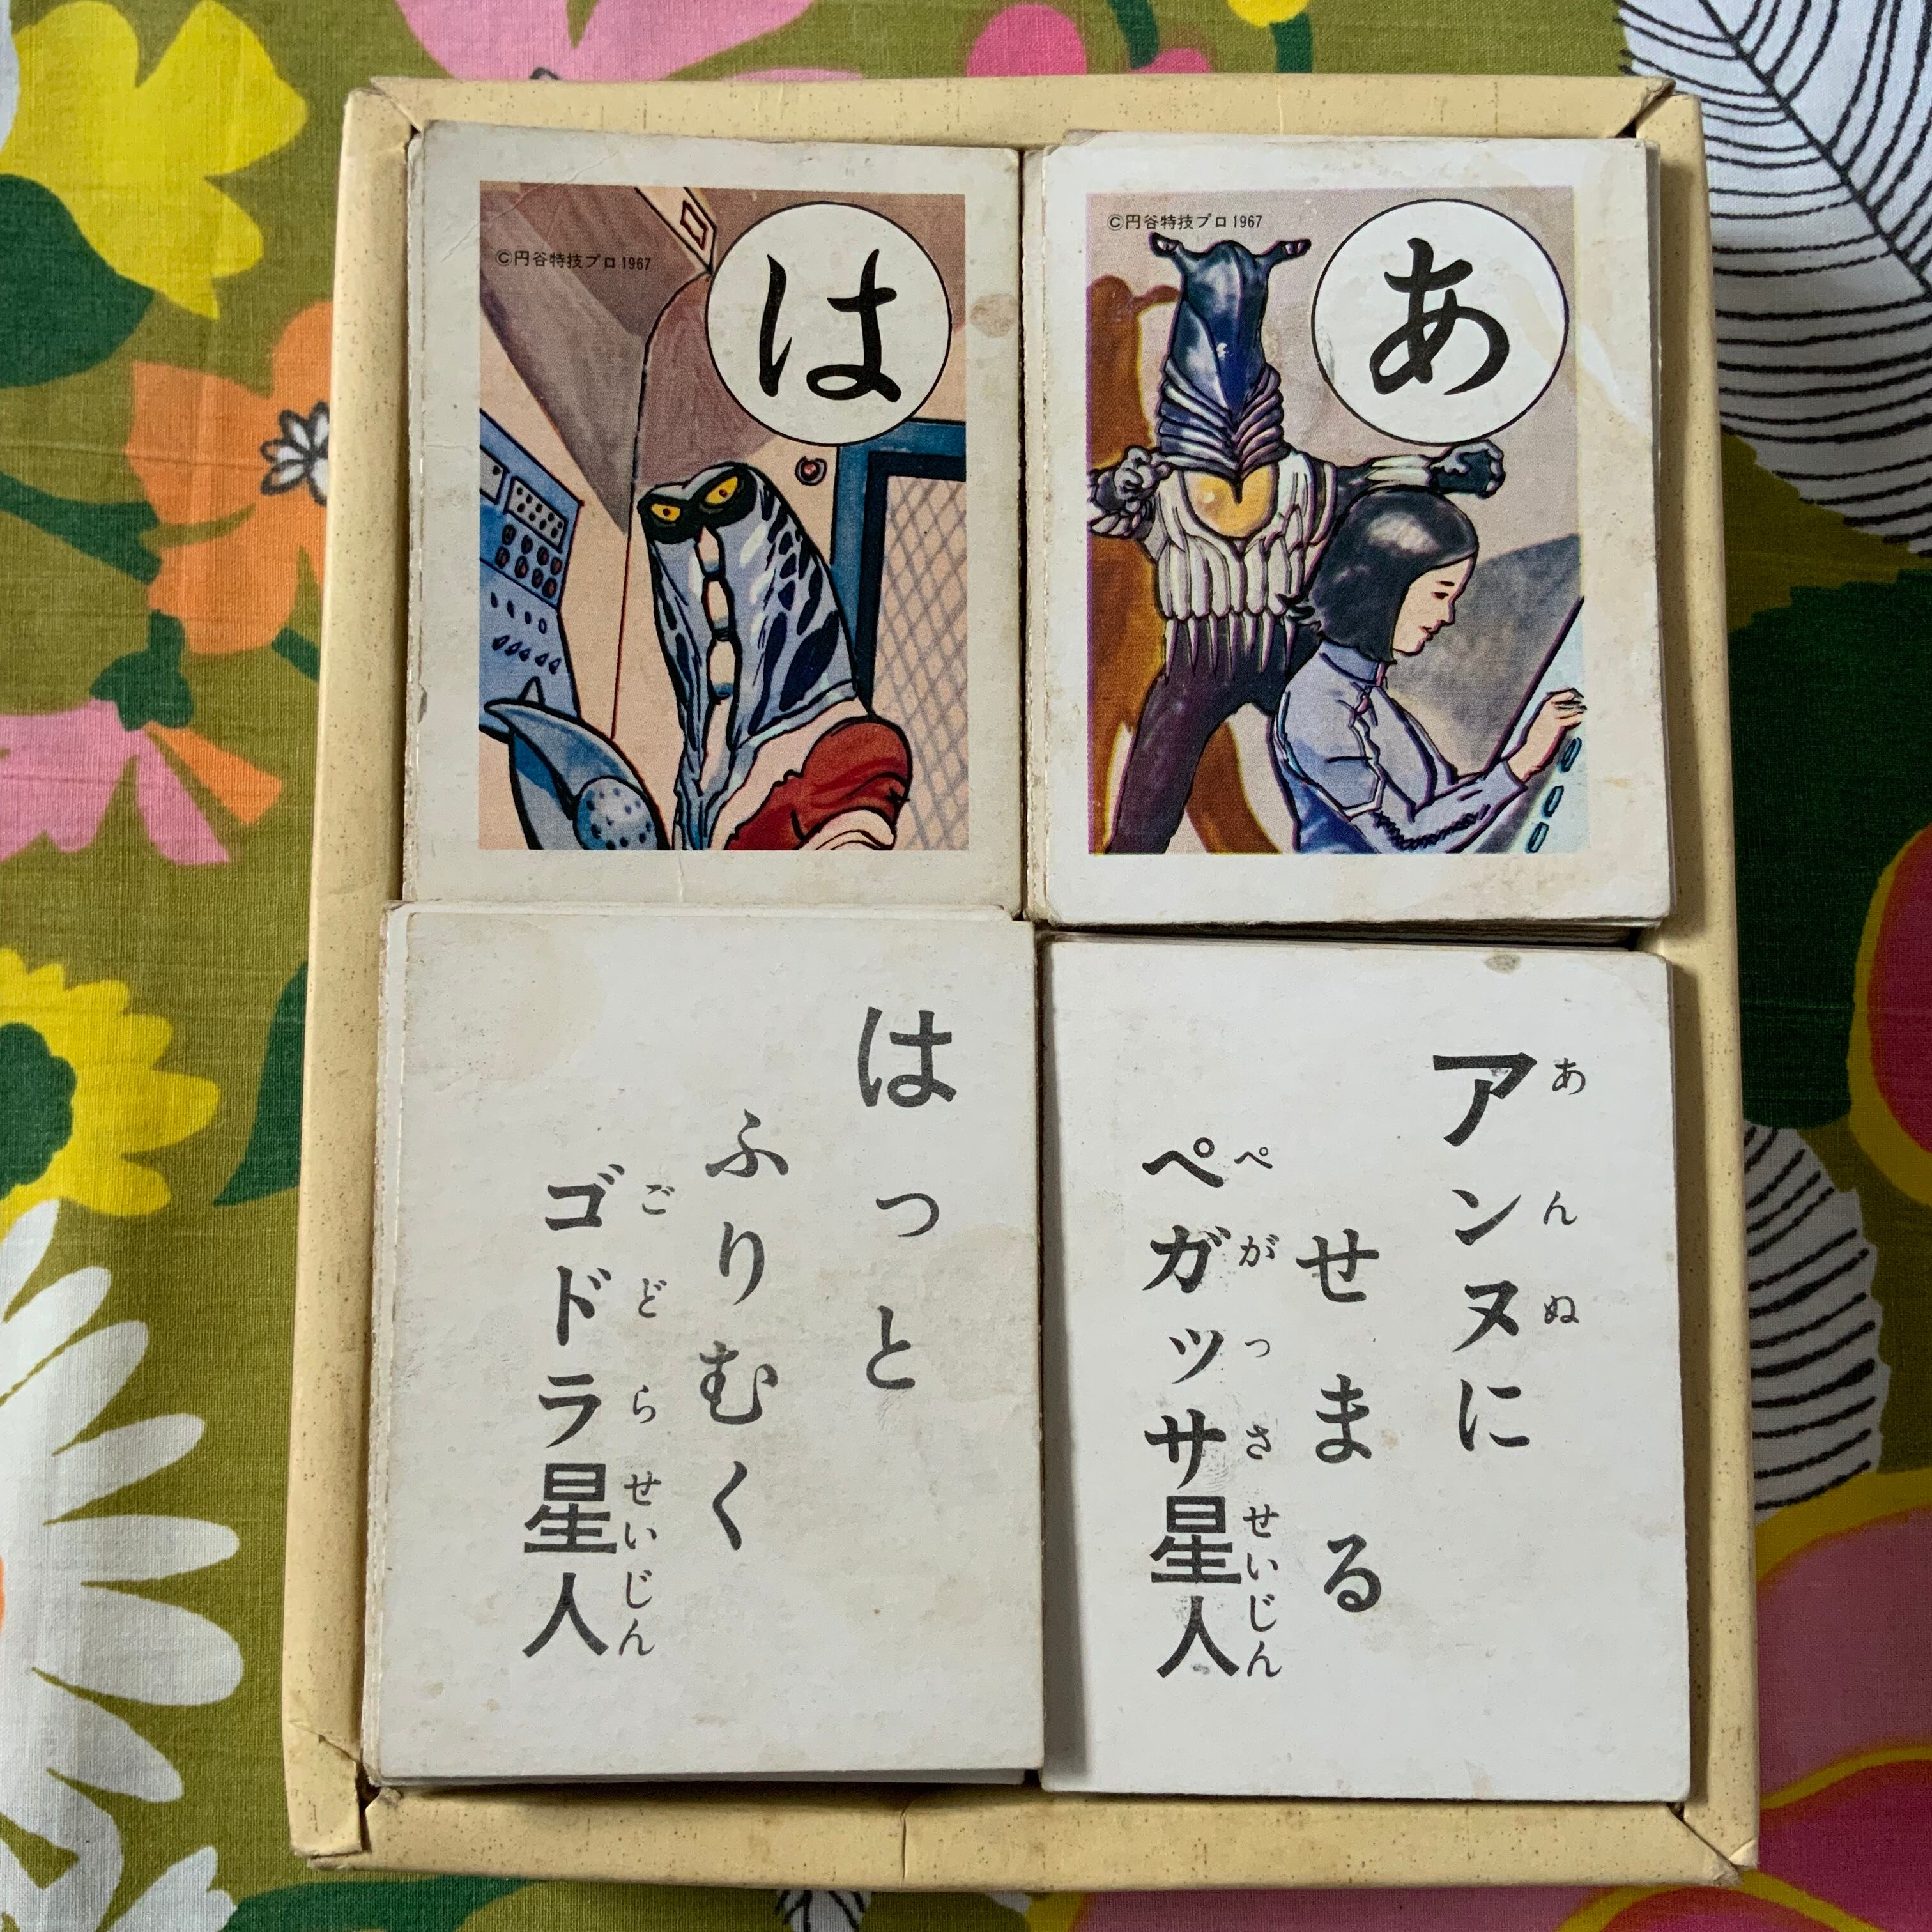 ©円谷特技プロ1967
は
©円谷特技プロ1967
あ
はっと
ふりむく
ゴドラ星人
ごどらせいじん
アンヌに
あんぬ
せまる
ペガッサ星人
ぺがっさせいじん